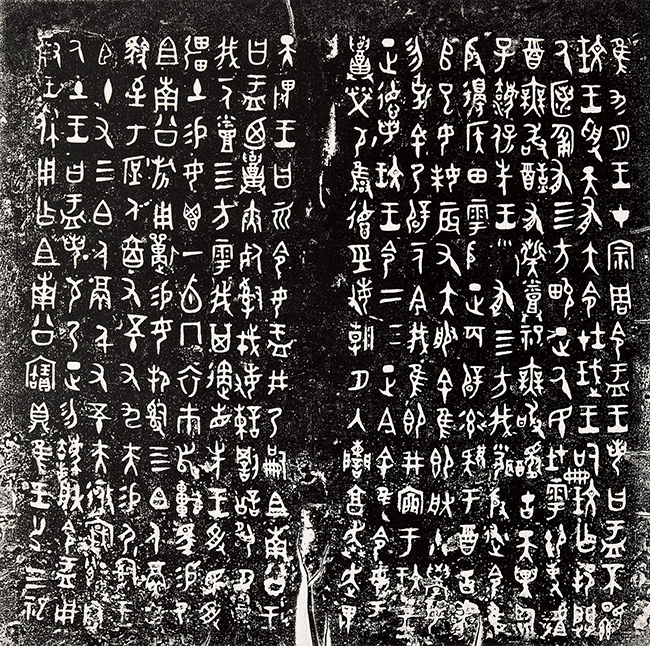 隹九月王才宗周令盂王若曰盂不顯
玟王受天有大令在珷王嗣玟乍邦闢
厥匿匍有四方畯正厥民在雩御事
酉無敢酖有祡蒸祀無敢古天異臨
子灋保先王有四方我聞殷述令隹
殷邊侯田雩殷正百辟率肄于酉古喪
師已女妹辰又大服余隹即朕小學女
勿余乃辟一人今我隹即井禀于玟王
正德若玟王令二三正今余隹令女盂
召榮敬雍德經敏朝夕入讕享奔走畏
天畏王曰而令女盂井乃嗣且南公王
曰盂乃召夾死司戎敏諫罰訟夙夕召
我一人烝四方雩我其遹省先王受民受
疆土易女鬯一卣冂衣巿舄車馬易乃
且南公旂用狩易女邦司四白人鬲自
馭至于庶人六百又五十又九夫易尸司王
臣十又三白人鬲千又五十夫遷自
厥土王曰盂若敬乃正勿灋朕令盂用
對王休用乍且南公寶鼎隹王廿又三祀